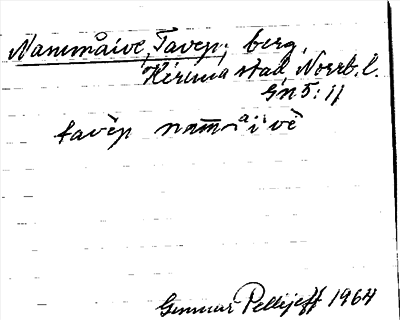 Nammåive, Tavep, berg,
Kiruna stad, Norrb. l.
Gn 5: 11
tavēp nam̅ᵃi̯vē
Gunnar Pellijeff 1964